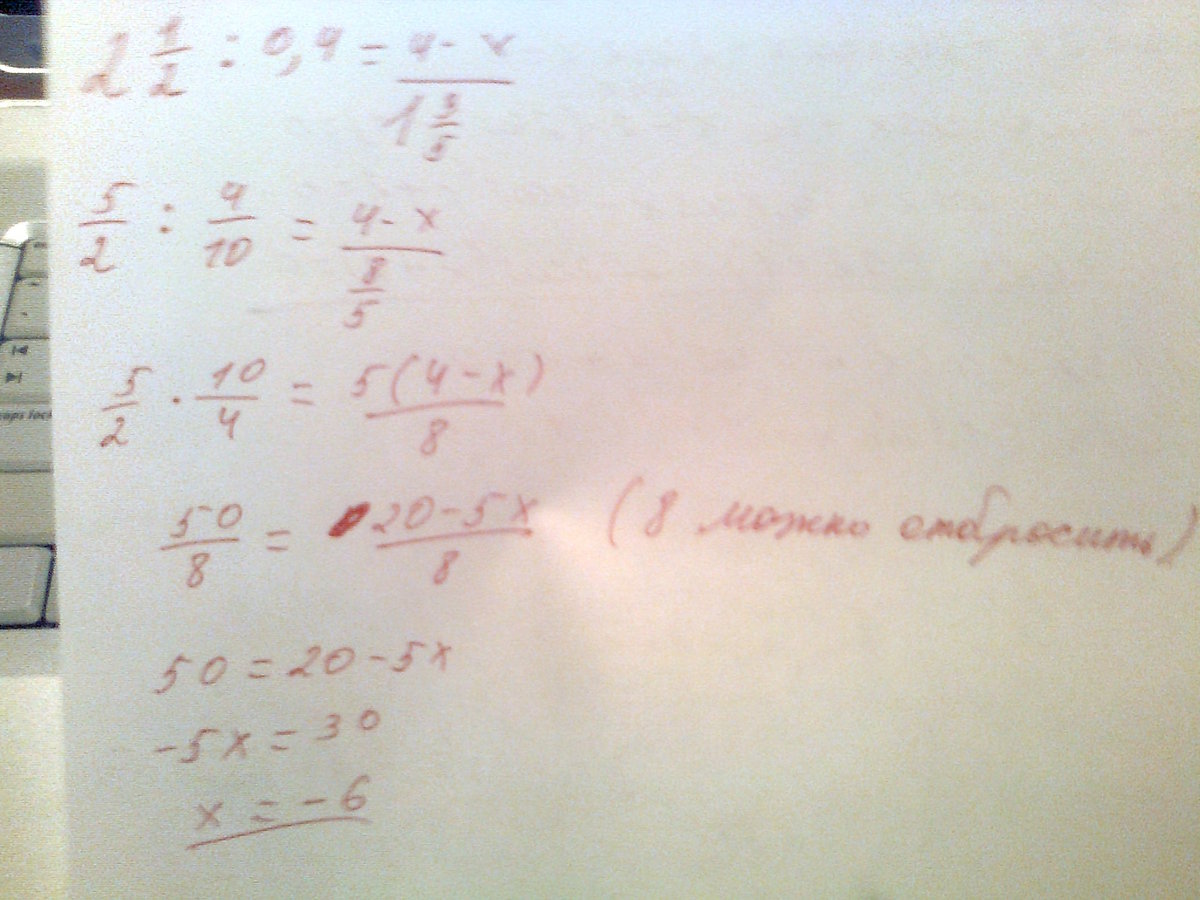 2 1/2 : 0,4 = (4 - x)/(1 3/5)
5/2 : 4/10 = (4 - x)/(8/5)
5/2 · 10/4 = 5(4 - x)/8
50/8 = (20 - 5x)/8 (8 можно отбросить)
50 = 20 - 5x
-5x = 30
x = -6
caps lock